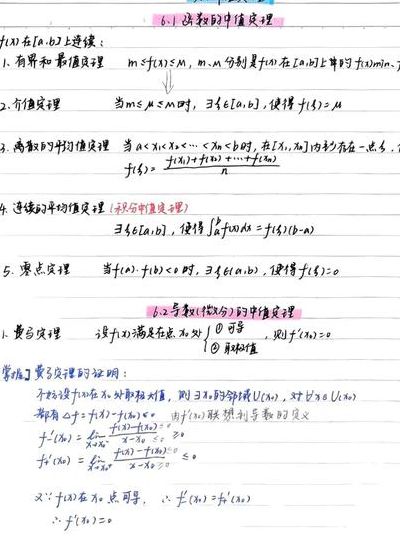 6.1 函数的中值定理
f(x)在[a,b]上连续：
1. 有界和最值定理 m≤f(x)≤M, m、M分别是f(x)在[a,b]上的f(x)min、
2. 介值定理 当m≤μ≤M时, ∃ξ∈[a,b], 使得f(ξ)=μ
3. 离散的平均值定理 当a<x₁<x₂<…<xₙ<b时, 在[x₁,xₙ]内至少存在一点ξ,
f(ξ)= (f(x₁)+f(x₂)+…+f(xₙ))/n
4. 连续的平均值定理 (积分中值定理)
∃ξ∈[a,b], 使得∫ₐᵇf(x)dx=f(ξ)(b-a)
5. 零点定理 当f(a)·f(b)<0时, ∃ξ∈(a,b), 使得f(ξ)=0
6.2 导数(微分)的中值定理
1. 费马定理 设f(x)满足在点x₀处{①可导 ②取极值, 则f'(x₀)=0
掌握】费马定理的证明：
不妨设f(x)在x₀处取极大值, 则∃x₀的邻域U(x₀), 对∀x∈U(x₀)
都有△f=f(x)-f(x₀)≤0 由f'(x₀)联想到导数的定义
f₋'(x₀)= lim x→x₀⁻ (f(x)-f(x₀) ≤0)/(x-x₀ ≤0) ≥0
f₊'(x₀)= lim x→x₀⁺ (f(x)-f(x₀) ≤0)/(x-x₀ ≥0) ≤0
又∵f(x)在x₀点可导, ∴f₋'(x₀)=f₊'(x₀)
∴f'(x₀)=0